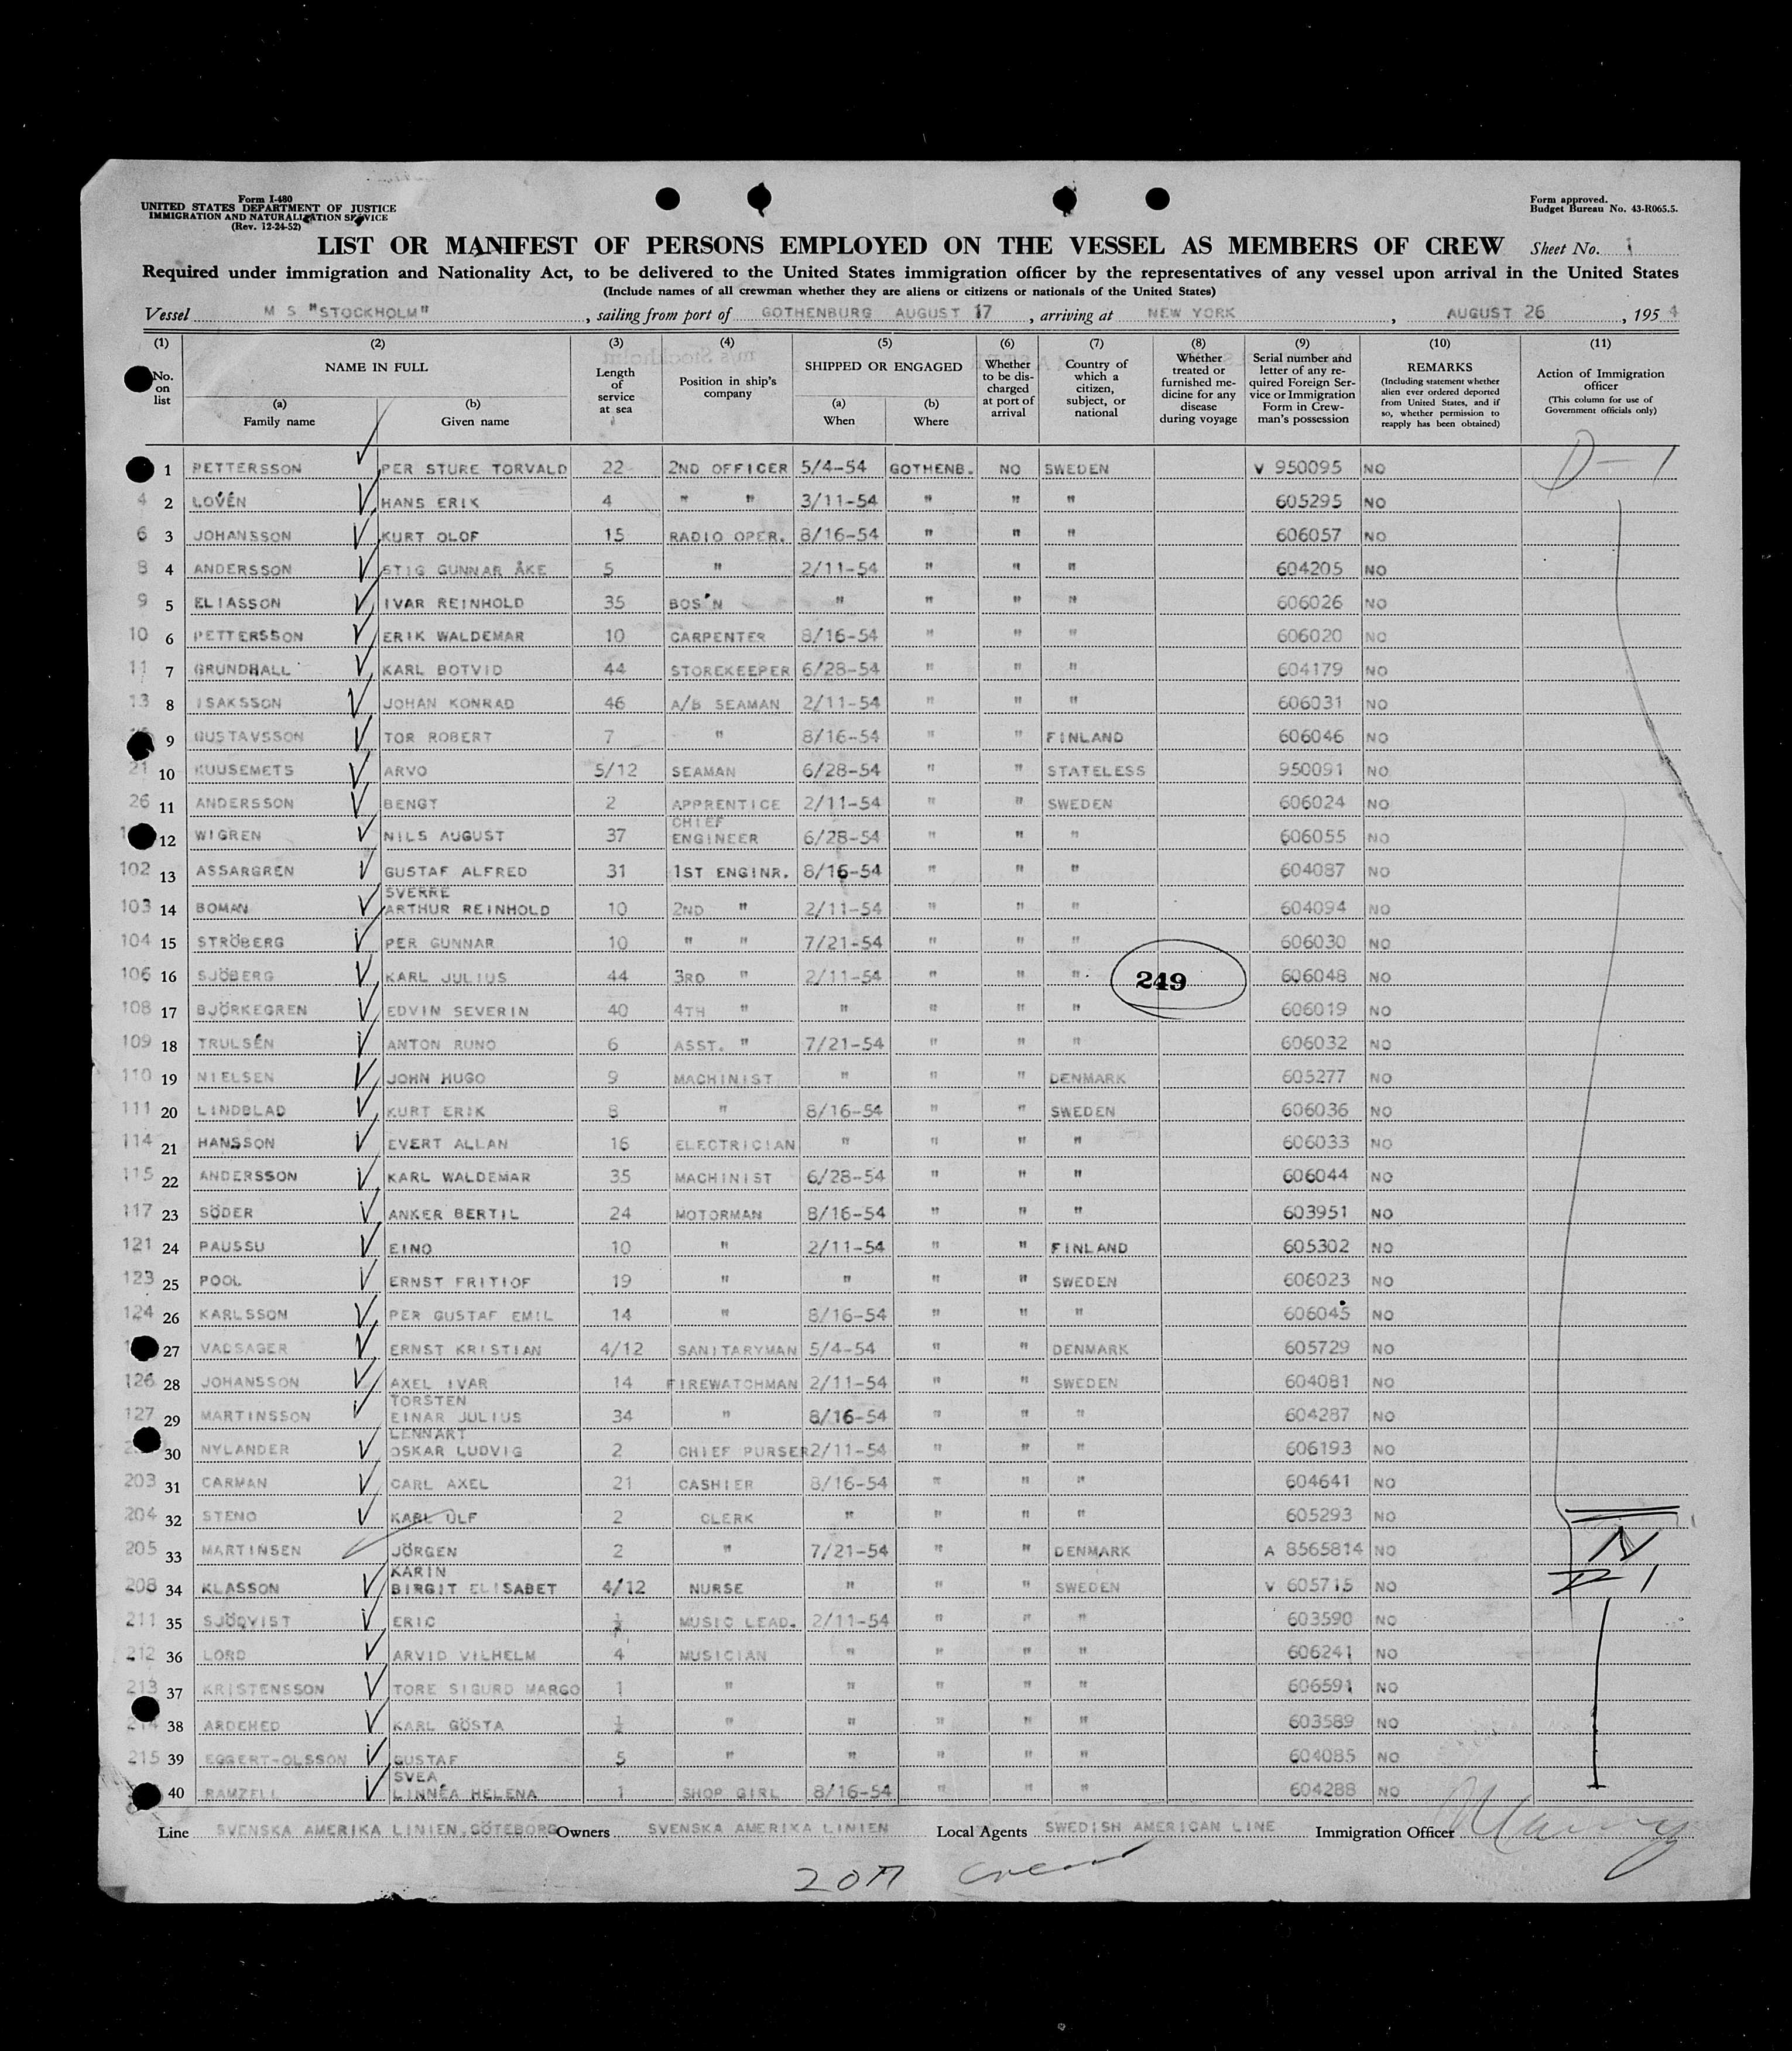 Form I-480
UNITED STATES DEPARTMENT OF JUSTICE
IMMIGRATION AND NATURALIZATION SERVICE
(Rev. 12-24-52)
Form approved.
Budget Bureau No. 43-R065.5.
LIST OR MANIFEST OF PERSONS EMPLOYED ON THE VESSEL AS MEMBERS OF CREW Sheet No. 1
Required under immigration and Nationality Act, to be delivered to the United States immigration officer by the representatives of any vessel upon arrival in the United States
(Include names of all crewman whether they are aliens or citizens or nationals of the United States)
Vessel M S "STOCKHOLM", sailing from port of GOTHENBURG AUGUST 17, arriving at NEW YORK, AUGUST 26, 1954
(1) (2) (3) (4) (5) (6) (7) (8) (9) (10) (11)
No. on list
NAME IN FULL
(a) Family name
(b) Given name
Length of service at sea
Position in ship's company
SHIPPED OR ENGAGED
(a) When
(b) Where
Whether to be discharged at port of arrival
Country of which a citizen, subject, or national
Whether treated or furnished medicine for any disease during voyage
Serial number and letter of any required Foreign Service or Immigration Form in Crewman's possession
REMARKS
(Including statement whether alien ever ordered deported from United States, and if so, whether permission to reapply has been obtained)
Action of Immigration officer
(This column for use of Government officials only)
D-1
1 PETTERSSON PER STURE TORVALD 22 2ND OFFICER 5/4-54 GOTHENB. NO SWEDEN V 950095 NO
4 2 LOVÉN HANS ERIK 4 " " 3/11-54 " " " 605295 NO
6 3 JOHANSSON KURT OLOF 15 RADIO OPER. 8/16-54 " " " 606057 NO
8 4 ANDERSSON STIG GUNNAR ÅKE 5 " 2/11-54 " " " 604205 NO
9 5 ELIASSON IVAR REINHOLD 35 BOS'N " " " " 606026 NO
10 6 PETTERSSON ERIK WALDEMAR 10 CARPENTER 8/16-54 " " " 606020 NO
11 7 GRUNDHALL KARL BOTVID 44 STOREKEEPER 6/28-54 " " " 604179 NO
13 8 ISAKSSON JOHAN KONRAD 46 A/B SEAMAN 2/11-54 " " " 606031 NO
9 GUSTAVSSON TOR ROBERT 7 " 8/16-54 " " FINLAND 606046 NO
21 10 KUUSEMETS ARVO 5/12 SEAMAN 6/28-54 " " STATELESS 950091 NO
26 11 ANDERSSON BENGT 2 APPRENTICE 2/11-54 " " SWEDEN 606024 NO
12 WIGREN NILS AUGUST 37 CHIEF ENGINEER 6/28-54 " " " 606055 NO
102 13 ASSARGREN GUSTAF ALFRED 31 1ST ENGINR. 8/16-54 " " " 604087 NO
103 14 BOMAN SVERRE ARTHUR REINHOLD 10 2ND " 2/11-54 " " " 604094 NO
104 15 STRÖBERG PER GUNNAR 10 " " 7/21-54 " " " 606030 NO
106 16 SJÖBERG KARL JULIUS 44 3RD " 2/11-54 " " " 249 606048 NO
108 17 BJÖRKEGREN EDVIN SEVERIN 40 4TH " " " " " 606019 NO
109 18 TRULSÉN ANTON RUNO 6 ASST. " 7/21-54 " " " 606032 NO
110 19 NIELSEN JOHN HUGO 9 MACHINIST " " " DENMARK 605277 NO
111 20 LINDBLAD KURT ERIK 8 " 8/16-54 " " SWEDEN 606036 NO
114 21 HANSSON EVERT ALLAN 16 ELECTRICIAN " " " " 606033 NO
115 22 ANDERSSON KARL WALDEMAR 35 MACHINIST 6/28-54 " " " 606044 NO
117 23 SÖDER ANKER BERTIL 24 MOTORMAN 8/16-54 " " " 603951 NO
121 24 PAUSSU EINO 10 " 2/11-54 " " FINLAND 605302 NO
123 25 POOL ERNST FRITIOF 19 " " " " SWEDEN 606023 NO
124 26 KARLSSON PER GUSTAF EMIL 14 " 8/16-54 " " " 606045 NO
27 VADSAGER ERNST KRISTIAN 4/12 SANITARYMAN 5/4-54 " " DENMARK 605729 NO
126 28 JOHANSSON AXEL IVAR 14 FIREWATCHMAN 2/11-54 " " SWEDEN 604081 NO
127 29 MARTINSSON TORSTEN EINAR JULIUS 34 " 8/16-54 " " " 604287 NO
30 NYLANDER LENNART OSKAR LUDVIG 2 CHIEF PURSER 2/11-54 " " " 606193 NO
203 31 CARMAN CARL AXEL 21 CASHIER 8/16-54 " " " 604641 NO
204 32 STENO KARL ULF 2 CLERK " " " " 605293 NO
205 33 MARTINSEN JÖRGEN 2 " 7/21-54 " " DENMARK A 8565814 NO N
208 34 KLASSON KARIN BIRGIT ELISABET 4/12 NURSE " " " SWEDEN V 605715 NO D-1
211 35 SJÖQVIST ERIC 1/2 MUSIC LEAD. 2/11-54 " " " 603590 NO
212 36 LORD ARVID VILHELM 4 MUSICIAN " " " " 606241 NO
213 37 KRISTENSSON TORE SIGURD MARGO 1 " " " " " 606591 NO
214 38 ARDEHED KARL GÖSTA 1/2 " " " " " 603589 NO
215 39 EGGERT-OLSSON GUSTAF 5 " " " " " 604085 NO
40 RAMZELL SVEA LINNÉA HELENA 1 SHOP GIRL 8/16-54 " " " 604288 NO
Line SVENSKA AMERIKA LINIEN, GÖTEBORG Owners SVENSKA AMERIKA LINIEN Local Agents SWEDISH AMERICAN LINE Immigration Officer